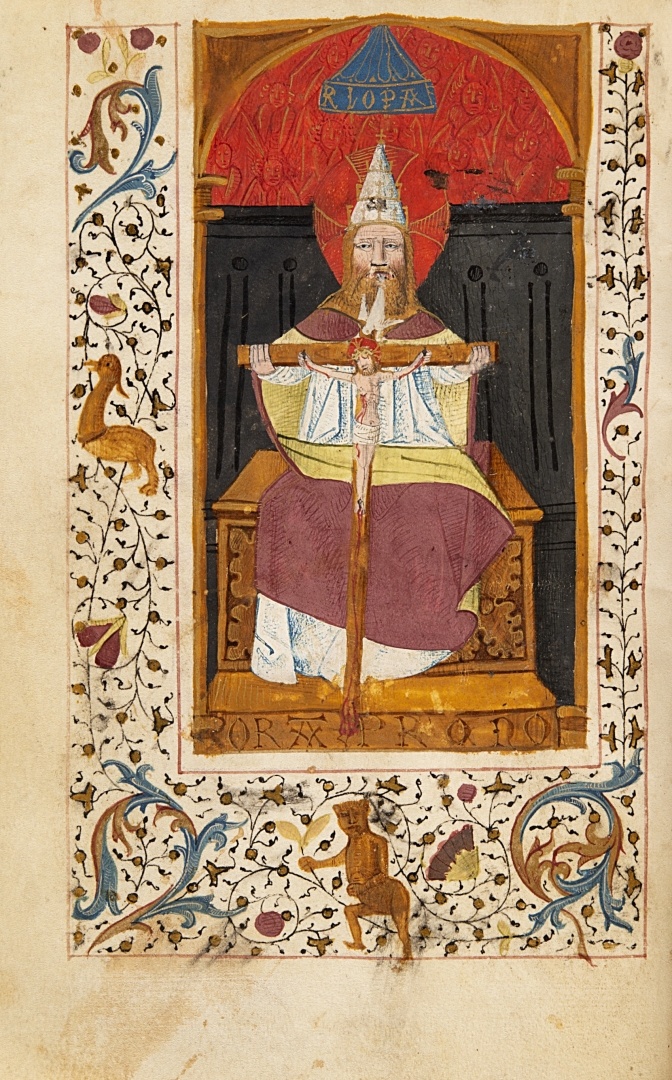 RIOPA
ORA PRO NOF